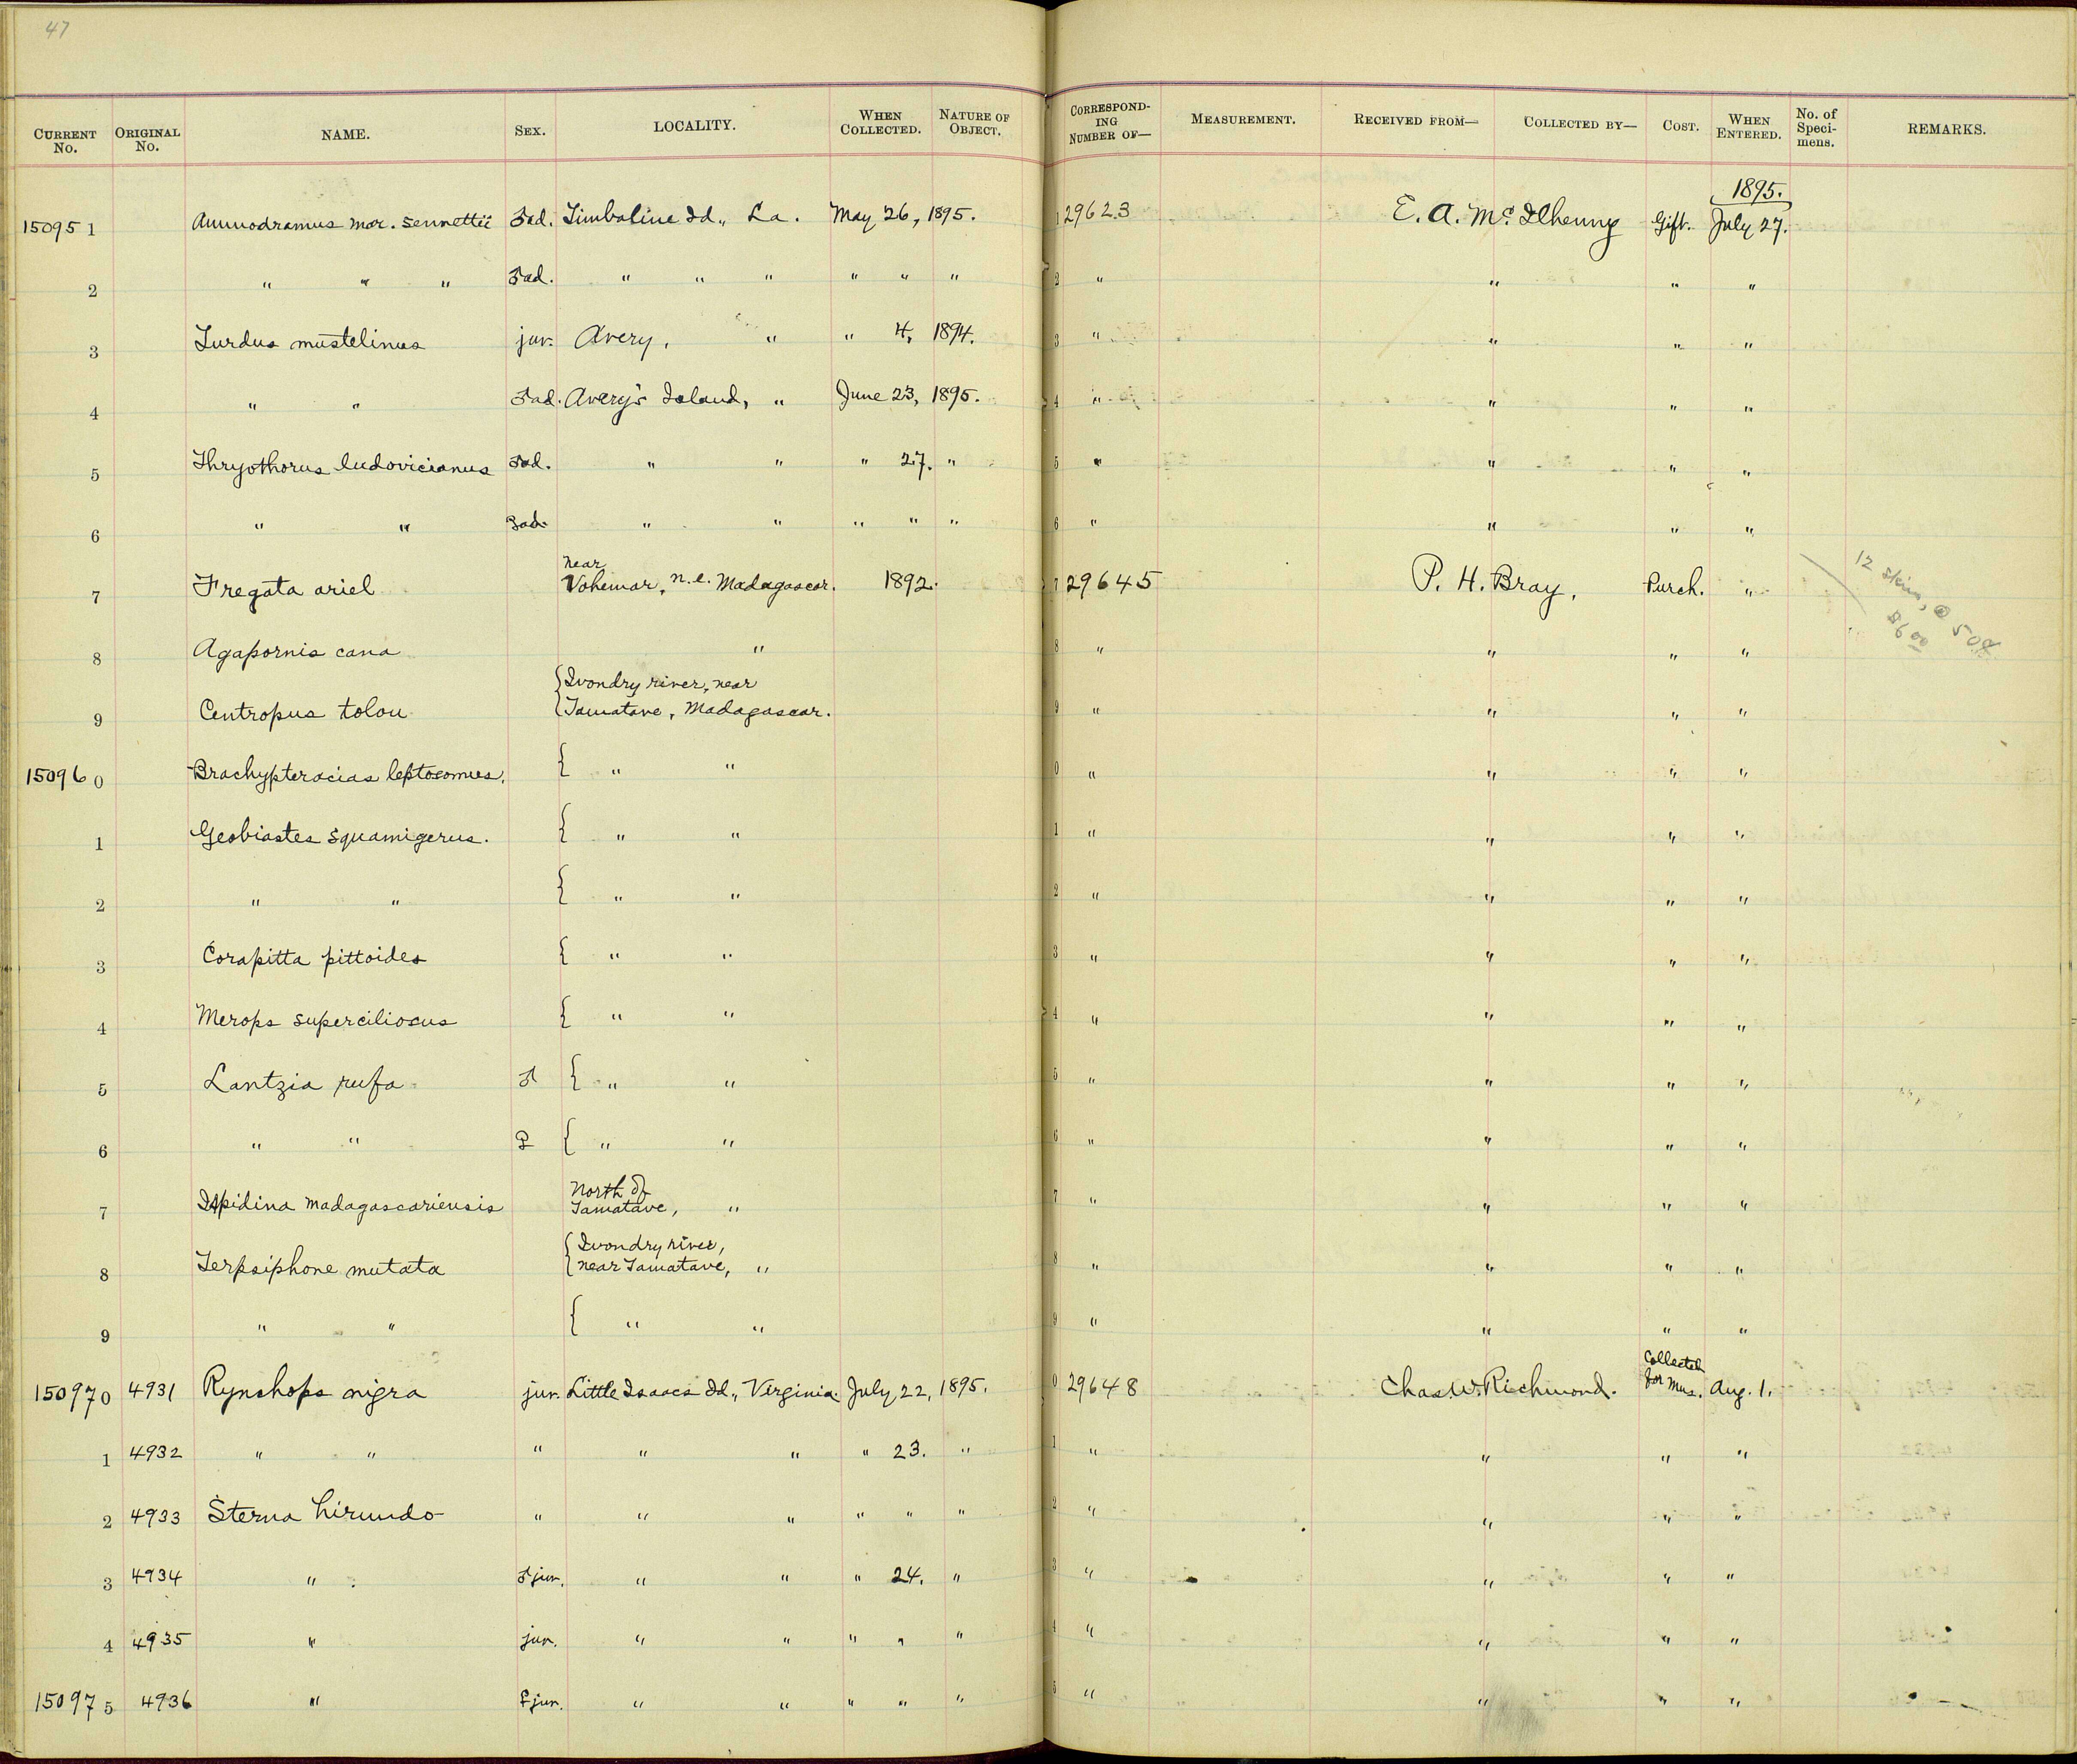 47
CURRENT No. ORIGINAL No. NAME. SEX. LOCALITY. WHEN COLLECTED. NATURE OF OBJECT. CORRESPONDING NUMBER OF— MEASUREMENT. RECEIVED FROM— COLLECTED BY— COST. WHEN ENTERED. No. of Specimens. REMARKS.
1895.
15095 1 Ammodramus mar. sennetti ♂ad. Timbaline Id., La. May 26, 1895. 1 29623 E. A. McIlhenny Gift. July 27.
2 " " " ♂ad. " " " " " " 2 " " " "
3 Turdus mustelinus juv. Avery, " " 4, 1894. 3 " " " "
4 " " ♂ad. Avery's Island, " June 23, 1895. 4 " " " "
5 Thryothorus ludovicianus ♂ad. " " " 27. " 5 " " " "
6 " " ♂ad. " " " " " 6 " " " "
7 Fregata ariel near Vohemar, n.e. Madagascar. 1892. 7 29645 P. H. Bray, Purch. " 12 skins, @ 50¢ $6.00
8 Agapornis cana " 8 " " " "
9 Centropus tolou { Ivondry river, near Tamatave, Madagascar. 9 " " " "
15096 0 Brachypteracias leptosomus. { " " 0 " " " "
1 Geobiastes squamigerus. { " " 1 " " " "
2 " " { " " 2 " " " "
3 Corapitta pittoides { " " 3 " " " "
4 Merops superciliosus { " " 4 " " " "
5 Lantzia rufa ♂ { " " 5 " " " "
6 " " ♀ { " " 6 " " " "
7 Ispidina madagascariensis North of Tamatave, " 7 " " " "
8 Terpsiphone mutata { Ivondry river, near Tamatave, " 8 " " " "
9 " " { " " 9 " " " "
15097 0 4931 Rynchops nigra juv. Little Isaacs Id., Virginia July 22, 1895. 0 29648 Chas. W. Richmond. Collected for Mus. Aug. 1.
1 4932 " " " " " " 23. " 1 " " " "
2 4933 Sterna hirundo " " " " " " 2 " " " "
3 4934 " ♂juv. " " " 24. " 3 " " " "
4 4935 " juv. " " " " " 4 " " " "
15097 5 4936 " ♀juv. " " " " " 5 " " " "